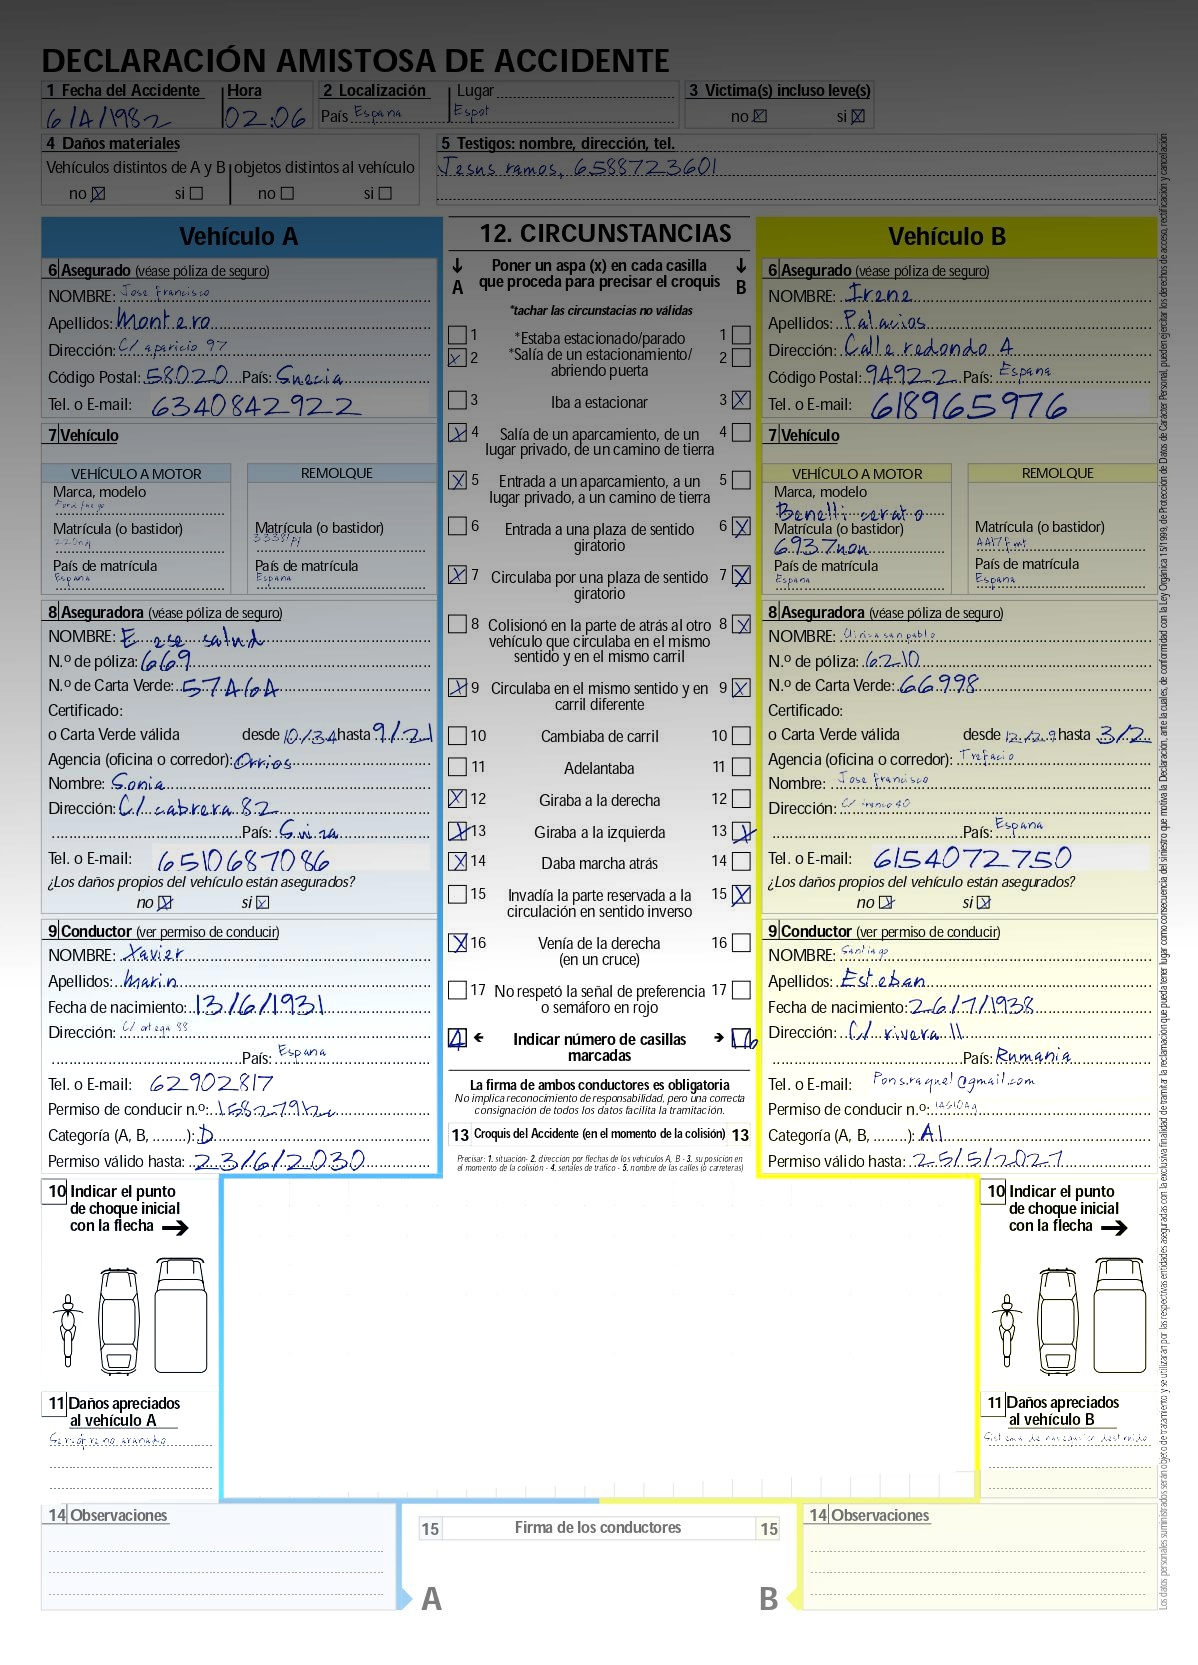 DECLARACIÓN AMISTOSA DE ACCIDENTE
1 Fecha del Accidente Hora 2 Localización Lugar 3 Victima(s) incluso leve(s)
6/4/1982 02:06 País Espana Espot no si
4 Daños materiales
Vehículos distintos de A y B objetos distintos al vehículo
no si no si
5 Testigos: nombre, dirección, tel.
Jesus ramos, 6588723601
Vehículo A
6 Asegurado (véase póliza de seguro)
NOMBRE: Jose Francisco
Apellidos: Montero
Dirección: C/ aparicio 97
Código Postal: 58020 País: Suecia
Tel. o E-mail: 6340842922
7 Vehículo
VEHÍCULO A MOTOR REMOLQUE
Marca, modelo
Matrícula (o bastidor) Matrícula (o bastidor)
País de matrícula País de matrícula
Espana Espana
8 Aseguradora (véase póliza de seguro)
NOMBRE: E ese salud
N.º de póliza: 669
N.º de Carta Verde: 57464
Certificado:
o Carta Verde válida desde 10/34 hasta 9/21
Agencia (oficina o corredor): Orrios
Nombre: Sonia
Dirección: C/ cabrera 82
País: Suiza
Tel. o E-mail: 6510687086
¿Los daños propios del vehículo están asegurados?
no si
9 Conductor (ver permiso de conducir)
NOMBRE: Xavier
Apellidos: Marin
Fecha de nacimiento: 13/6/1931
Dirección: C/ ortega 88
País: Espana
Tel. o E-mail: 62902817
Permiso de conducir n.º:
Categoría (A, B, ........): D
Permiso válido hasta: 23/6/2030
12. CIRCUNSTANCIAS
A Poner un aspa (x) en cada casilla que proceda para precisar el croquis B
*tachar las circunstacias no válidas
1 *Estaba estacionado/parado 1
2 *Salía de un estacionamiento/ 2
abriendo puerta
3 Iba a estacionar 3
4 Salía de un aparcamiento, de un 4
lugar privado, de un camino de tierra
5 Entrada a un aparcamiento, a un 5
lugar privado, a un camino de tierra
6 Entrada a una plaza de sentido 6
giratorio
7 Circulaba por una plaza de sentido 7
giratorio
8 Colisionó en la parte de atrás al otro 8
vehículo que circulaba en el mismo
sentido y en el mismo carril
9 Circulaba en el mismo sentido y en 9
carril diferente
10 Cambiaba de carril 10
11 Adelantaba 11
12 Giraba a la derecha 12
13 Giraba a la izquierda 13
14 Daba marcha atrás 14
15 Invadía la parte reservada a la 15
circulación en sentido inverso
16 Venía de la derecha 16
(en un cruce)
17 No respetó la señal de preferencia 17
o semáforo en rojo
4 Indicar número de casillas 16
marcadas
La firma de ambos conductores es obligatoria
No implica reconocimiento de responsabilidad, pero una correcta
consignación de todos los datos facilita la tramitación.
13 Croquis del Accidente (en el momento de la colisión) 13
Precisar: 1. situación- 2. dirección por flechas de los vehículos A, B - 3. su posición en
el momento de la colisión - 4. señales de tráfico - 5. nombre de las calles (o carreteras)
Vehículo B
6 Asegurado (véase póliza de seguro)
NOMBRE: Irene
Apellidos: Palacios
Dirección: Calle redondo 4
Código Postal: 94922 País: Espana
Tel. o E-mail: 618965976
7 Vehículo
VEHÍCULO A MOTOR REMOLQUE
Marca, modelo
Benelli cerato
Matrícula (o bastidor) Matrícula (o bastidor)
6937non
País de matrícula País de matrícula
Espana Espana
8 Aseguradora (véase póliza de seguro)
NOMBRE: Clinica san pablo
N.º de póliza: 6210
N.º de Carta Verde: 66998
Certificado:
o Carta Verde válida desde 12/29 hasta 3/2
Agencia (oficina o corredor): Trefacio
Nombre: Jose Francisco
Dirección: C/ franco 40
País: Espana
Tel. o E-mail: 6154072750
¿Los daños propios del vehículo están asegurados?
no si
9 Conductor (ver permiso de conducir)
NOMBRE: Santiago
Apellidos: Esteban
Fecha de nacimiento: 26/7/1938
Dirección: C/ rivera 11
País: Rumania
Tel. o E-mail: Pons.raquel@gmail.com
Permiso de conducir n.º:
Categoría (A, B, ........): A1
Permiso válido hasta: 25/5/2027
10 Indicar el punto
de choque inicial
con la flecha
11 Daños apreciados
al vehículo A
10 Indicar el punto
de choque inicial
con la flecha
11 Daños apreciados
al vehículo B
Sistema de navegacion destruido
14 Observaciones
15 Firma de los conductores 15
A B
14 Observaciones